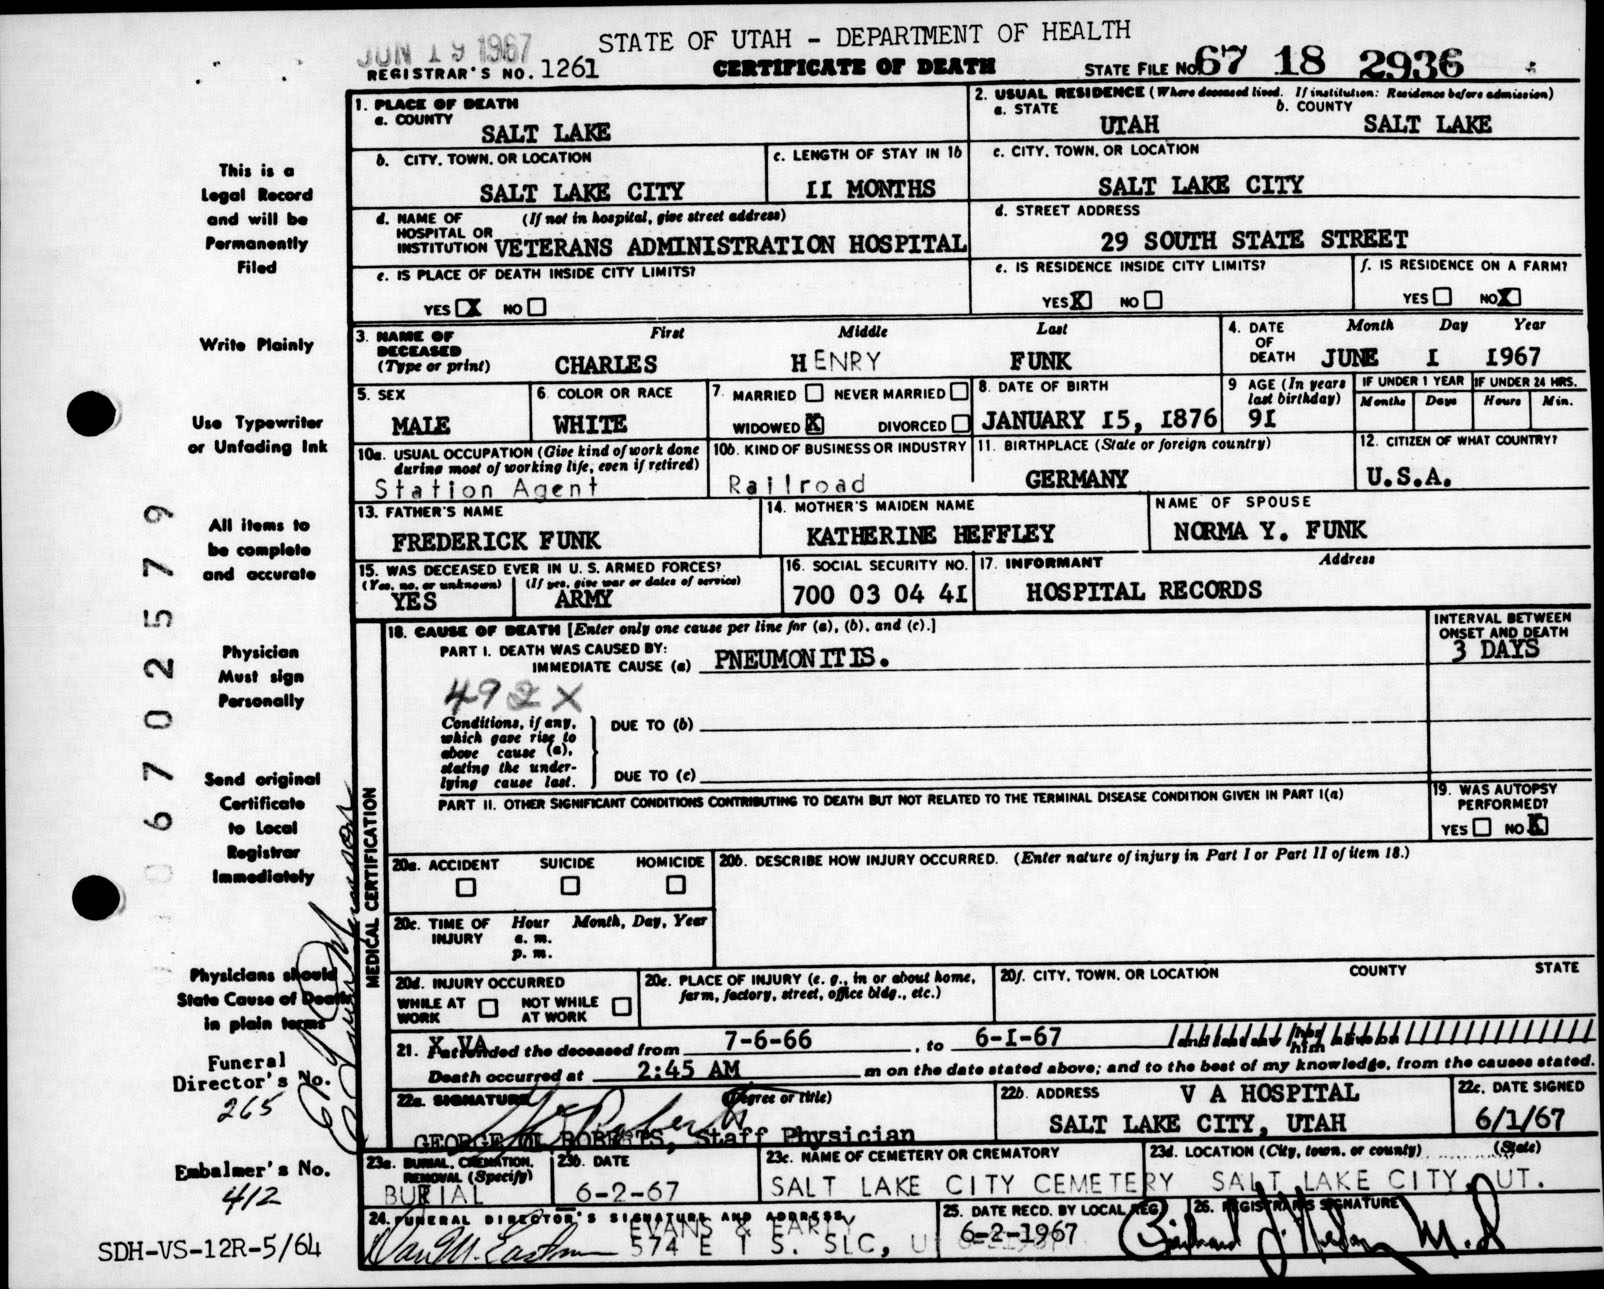 JUN 19 1967
STATE OF UTAH - DEPARTMENT OF HEALTH
REGISTRAR'S NO. 1261
CERTIFICATE OF DEATH
STATE FILE NO. 67 18 2936
1. PLACE OF DEATH
a. COUNTY
SALT LAKE
2. USUAL RESIDENCE (Where deceased lived. If institution: Residence before admission)
a. STATE UTAH
b. COUNTY SALT LAKE
b. CITY, TOWN, OR LOCATION
SALT LAKE CITY
c. LENGTH OF STAY IN 1b
11 MONTHS
c. CITY, TOWN, OR LOCATION
SALT LAKE CITY
d. NAME OF HOSPITAL OR INSTITUTION (If not in hospital, give street address)
VETERANS ADMINISTRATION HOSPITAL
d. STREET ADDRESS
29 SOUTH STATE STREET
e. IS PLACE OF DEATH INSIDE CITY LIMITS?
YES X NO
e. IS RESIDENCE INSIDE CITY LIMITS?
YES X NO
f. IS RESIDENCE ON A FARM?
YES NO X
3. NAME OF DECEASED (Type or print)
First Middle Last
CHARLES HENRY FUNK
4. DATE OF DEATH
Month Day Year
JUNE 1 1967
5. SEX
MALE
6. COLOR OR RACE
WHITE
7. MARRIED NEVER MARRIED
WIDOWED X DIVORCED
8. DATE OF BIRTH
JANUARY 15, 1876
9 AGE (In years last birthday)
91
IF UNDER 1 YEAR
Months Days
IF UNDER 24 HRS.
Hours Min.
10a. USUAL OCCUPATION (Give kind of work done during most of working life, even if retired)
Station Agent
10b. KIND OF BUSINESS OR INDUSTRY
Railroad
11. BIRTHPLACE (State or foreign country)
GERMANY
12. CITIZEN OF WHAT COUNTRY?
U.S.A.
13. FATHER'S NAME
FREDERICK FUNK
14. MOTHER'S MAIDEN NAME
KATHERINE HEFFLEY
NAME OF SPOUSE
NORMA Y. FUNK
15. WAS DECEASED EVER IN U. S. ARMED FORCES?
(Yes, no, or unknown) (If yes, give war or dates of service)
YES ARMY
16. SOCIAL SECURITY NO.
700 03 04 41
17. INFORMANT Address
HOSPITAL RECORDS
MEDICAL CERTIFICATION
18. CAUSE OF DEATH [Enter only one cause per line for (a), (b), and (c).]
PART I. DEATH WAS CAUSED BY:
IMMEDIATE CAUSE (a) PNEUMONITIS.
INTERVAL BETWEEN ONSET AND DEATH
3 DAYS
492X
Conditions, if any, which gave rise to above cause (a), stating the underlying cause last.
DUE TO (b)
DUE TO (c)
PART II. OTHER SIGNIFICANT CONDITIONS CONTRIBUTING TO DEATH BUT NOT RELATED TO THE TERMINAL DISEASE CONDITION GIVEN IN PART I(a)
19. WAS AUTOPSY PERFORMED?
YES NO X
20a. ACCIDENT SUICIDE HOMICIDE
20b. DESCRIBE HOW INJURY OCCURRED. (Enter nature of injury in Part I or Part II of item 18.)
20c. TIME OF INJURY
Hour Month, Day, Year
a. m.
p. m.
20d. INJURY OCCURRED
WHILE AT WORK NOT WHILE AT WORK
20e. PLACE OF INJURY (e. g., in or about home, farm, factory, street, office bldg., etc.)
20f. CITY, TOWN, OR LOCATION COUNTY STATE
21. X VA attended the deceased from 7-6-66, to 6-1-67 and last saw her him alive on
Death occurred at 2:45 AM m on the date stated above; and to the best of my knowledge, from the causes stated.
22a. SIGNATURE (Degree or title)
GEORGE M ROBERTS, Staff Physician
22b. ADDRESS V A HOSPITAL
SALT LAKE CITY, UTAH
22c. DATE SIGNED
6/1/67
23a. BURIAL, CREMATION, REMOVAL (Specify)
BURIAL
23b. DATE
6-2-67
23c. NAME OF CEMETERY OR CREMATORY
SALT LAKE CITY CEMETERY
23d. LOCATION (City, town, or county) (State)
SALT LAKE CITY, UT.
24. FUNERAL DIRECTOR'S SIGNATURE AND ADDRESS
EVANS & EARLY
574 E 1 S. SLC, U
25. DATE RECD. BY LOCAL REG.
6-2-1967
26. REGISTRAR'S SIGNATURE
M.D
This is a
Legal Record
and will be
Permanently
Filed
Write Plainly
Use Typewriter
or Unfading Ink
All items to
be complete
and accurate
Physician
Must sign
Personally
Send original
Certificate
to Local
Registrar
Immediately
Physicians should
State Cause of Death
in plain terms
Funeral
Director's No.
265
Embalmer's No.
412
SDH-VS-12R-5/64
06702579